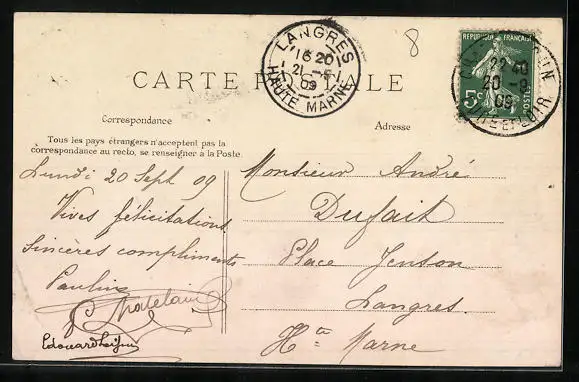 8
LANGRES
16 20
21 - 9
09
HAUTE MARNE
REPUBLIQUE FRANÇAISE
5c
POSTES
22 40
20 - 9
09
CARTE POSTALE
Correspondance
Adresse
Tous les pays étrangers n'acceptent pas la
correspondance au recto, se renseigner à la Poste.
Lundi 20 Sept 09
Vives félicitations
Sincères compliments
Pauline
Chatelain
Edouard
Monsieur André
Dufait
Place Jenson
Langres
Hte Marne